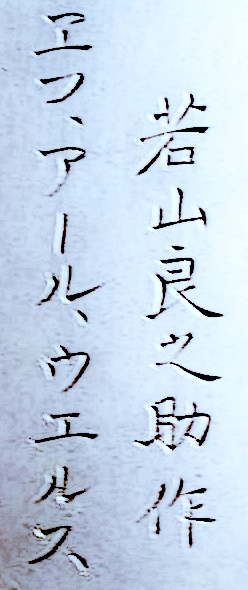 若山良之助作
ヱフ、アール、ウエルス、